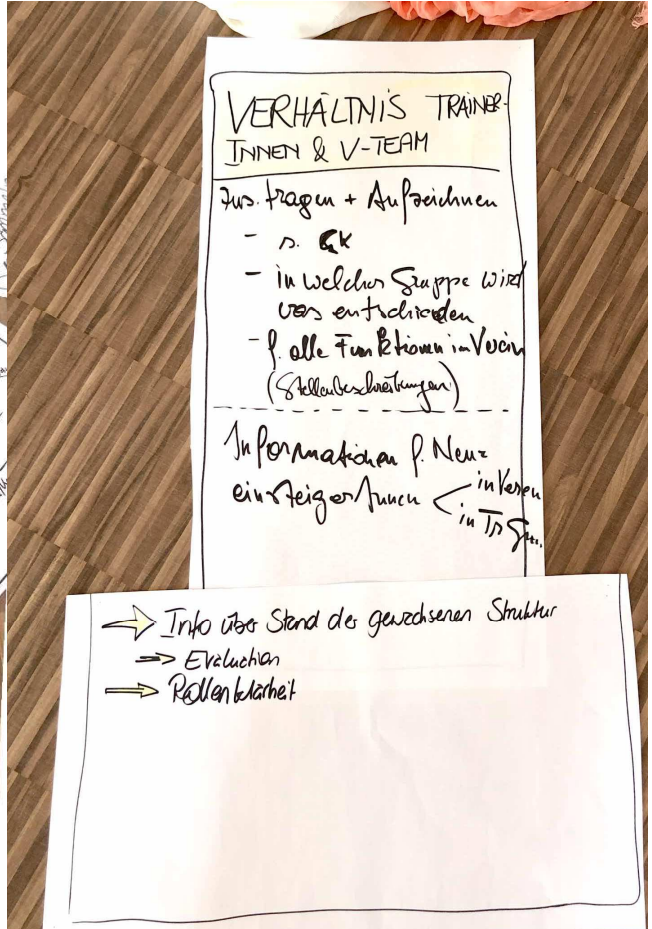 VERHÄLTNIS TRAINER-
INNEN & V-TEAM
Zus. tragen + Aufzeichnen
- s. GK
- in welcher Gruppe wird
was entschieden
- f. alle Funktionen im Verein
(Stellenbeschreibungen)
Informationen f. Neu=
einsteigerInnen < in Verein
in Tr
→ Info über Stand der gewachsenen Struktur
⇒ Evaluation
⇒ Rollenklarheit